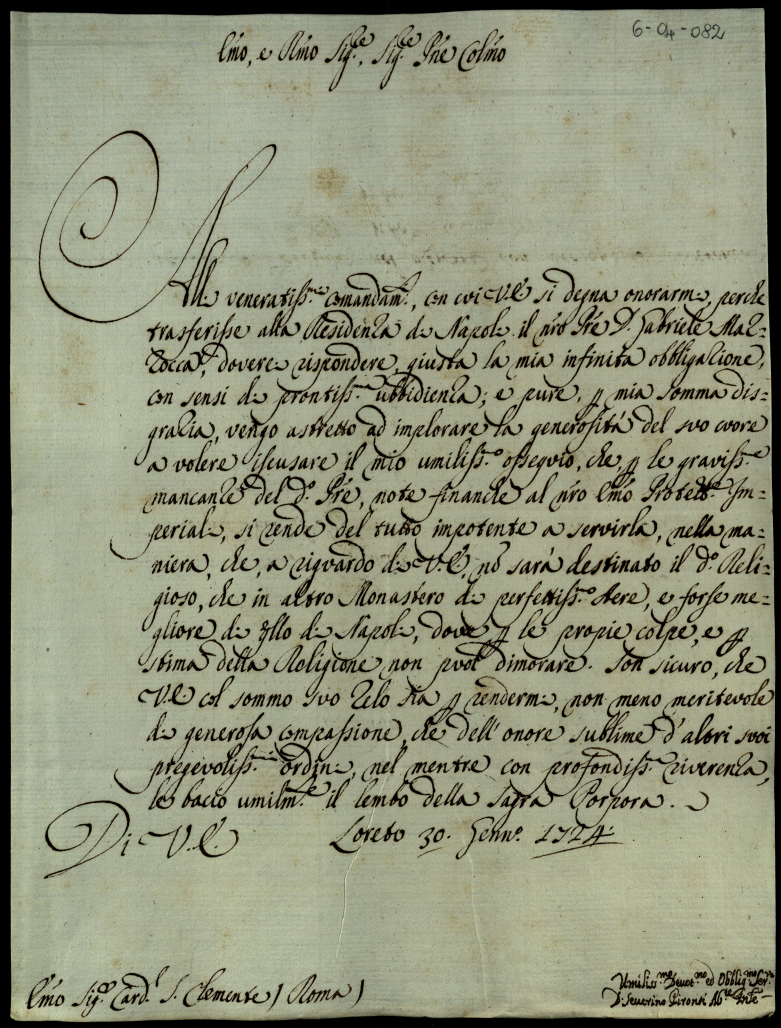 6-04-082
Emo, e Rmo Sig.re, Sig.re Pne Colmo
Alli veneratiss.mi comandam.ti, con cui V.E. si degna onorarmi, perche
trasferisse alla Residenza di Napoli il nro Pre D. Gabriele Maz=
zocca, doverei rispondere, giusta la mia infinita obbligazione,
con sensi di prontiss.ma ubbidienza; e pure, p mia somma dis=
grazia, vengo astretto ad implorare la generosità del suo cuore
a volere iscusare il mio umiliss.o ossequio, che, p le graviss.e
mancanze del d.o Pre, note finanche al nro Emo Protett.e Im=
periali, si rende del tutto impotente a servirla, nella ma=
niera, che, a riguardo di V.E. nõ sarà destinato il d.o Reli=
gioso, che in altro Monastero di perfettiss.o Aere, e forse me=
gliore di qllo di Napoli, dove p le propie colpe, e p
stima della Religione non può dimorare. Son sicuro, che
V.E. col sommo suo zelo sia p rendermi, non meno meritevole
di generosa compassione, che dell'onore sublime d'altri suoi
pregevoliss.mi ordini, nel mentre con profondiss.a riverenza,
le baccio umilm.te il lembo della Sagra Porpora.
Di V.E. Loreto 30. Genn.o 1724.
Emo Sig.e Card.l S. Clemente) Roma)
Umiliss.mo Devot.mo ed Obblig.mo Ser.re
D. Severino Pironti Ab.te